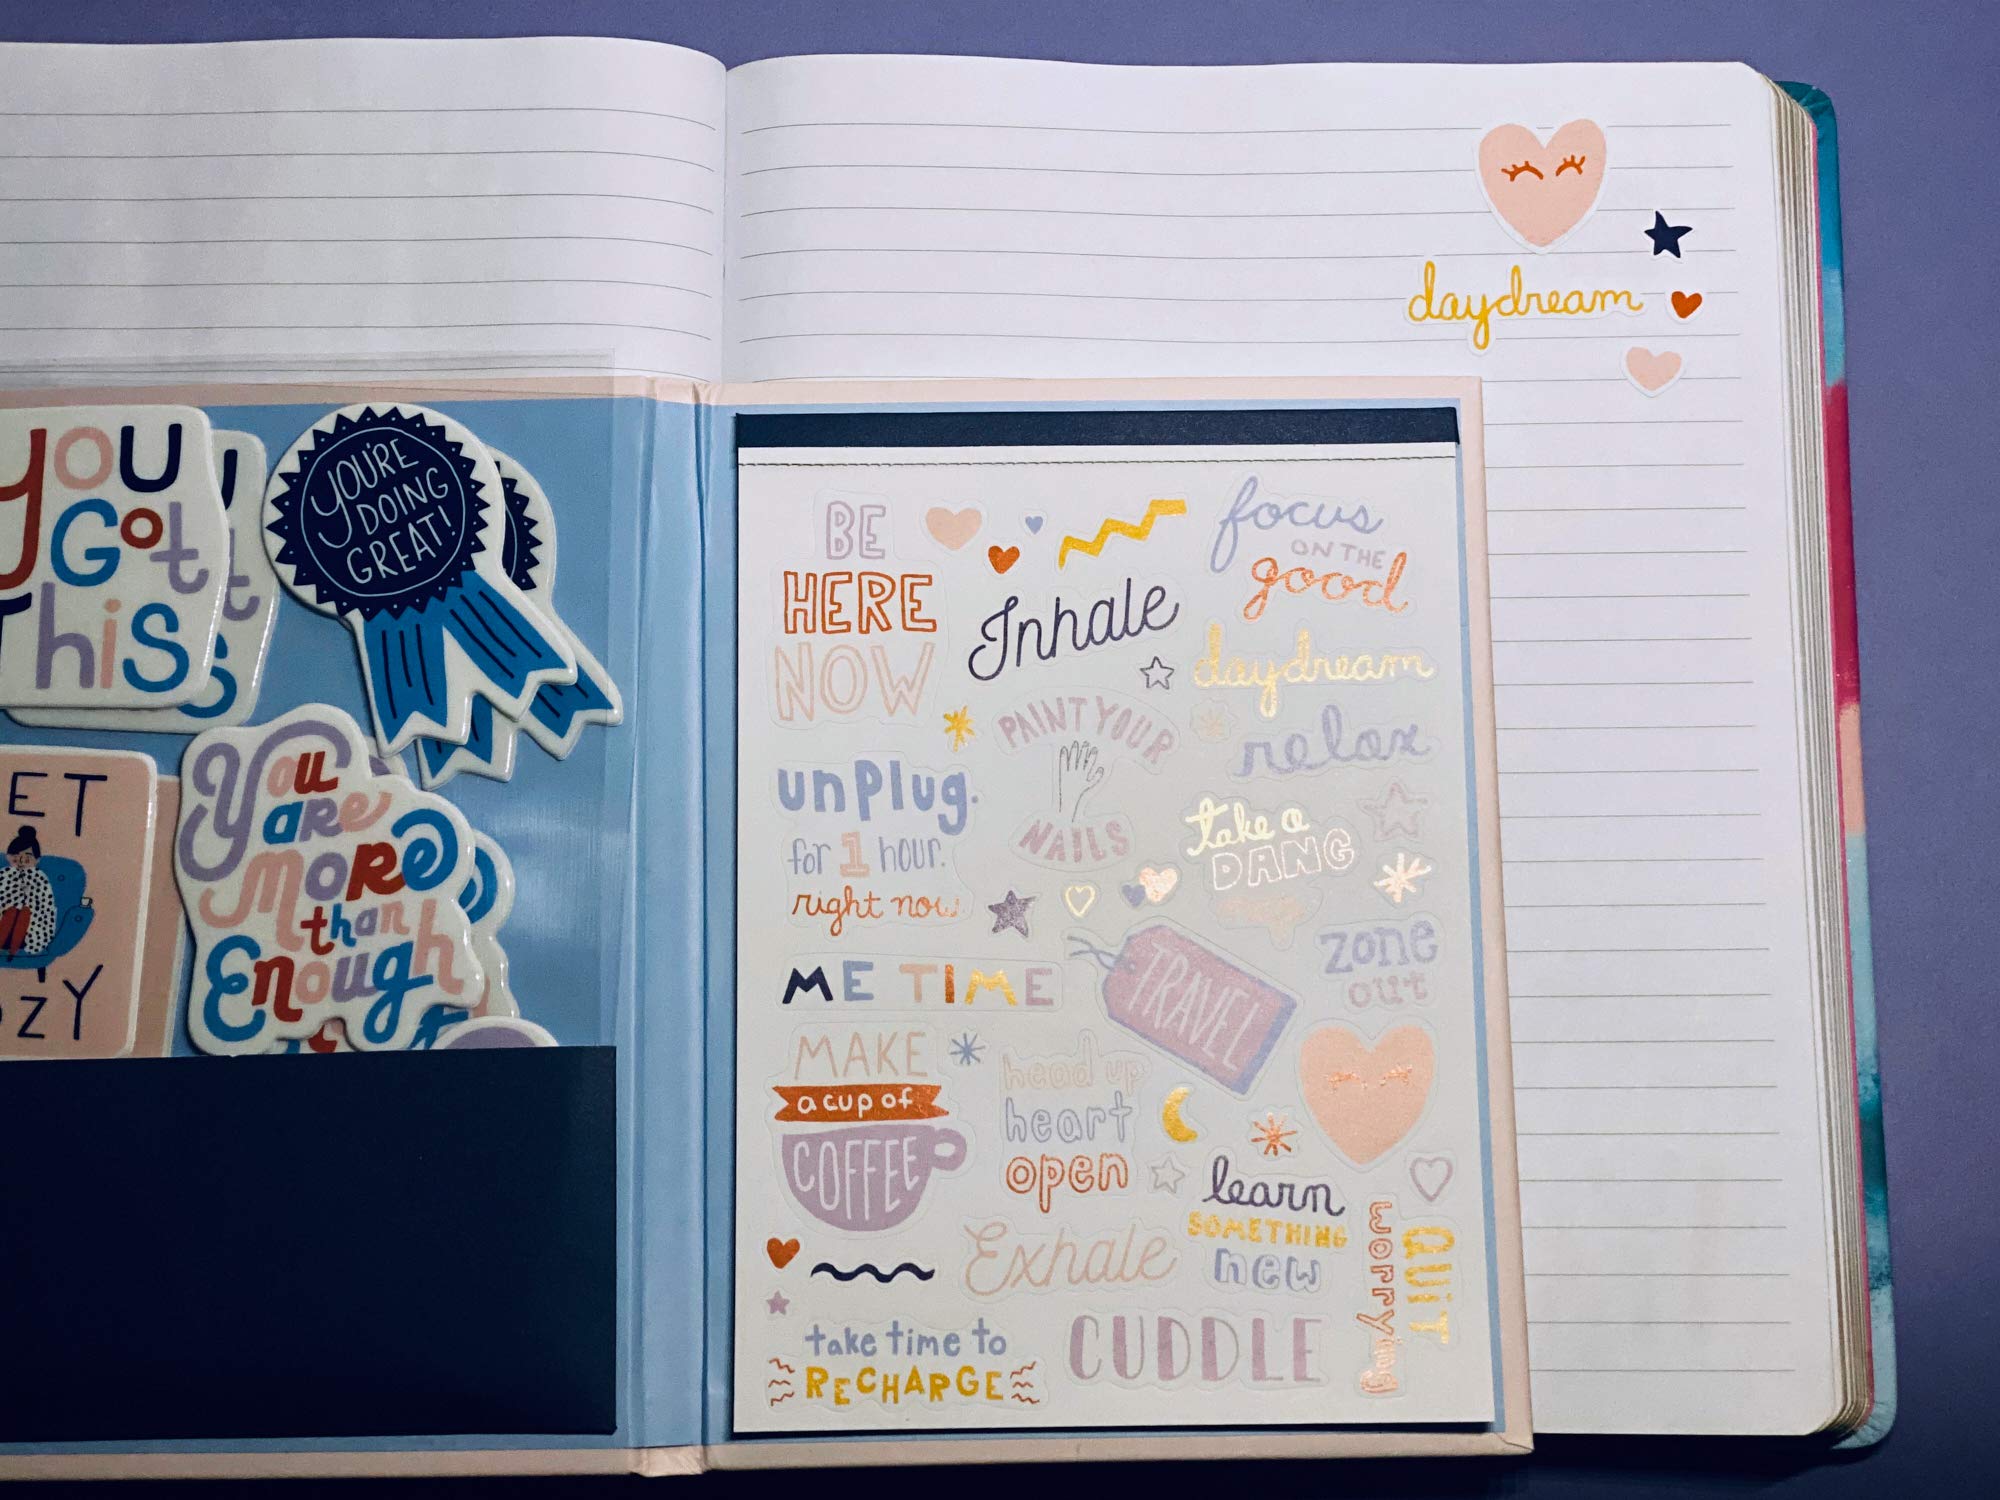 daydream
you
Got
This
YOU'RE
DOING
GREAT!
ET
ZY
You
are
more
than
Enough
BE
HERE
NOW
Inhale
focus
ON THE
good
daydream
PAINT YOUR
NAILS
relax
unplug.
for 1 hour.
right now
take a
DANG
ME TIME
TRAVEL
zone
out
MAKE
a cup of
COFFEE
head up
heart
open
learn
SOMETHING
new
QUIT
worrying
Exhale
take time to
RECHARGE
CUDDLE